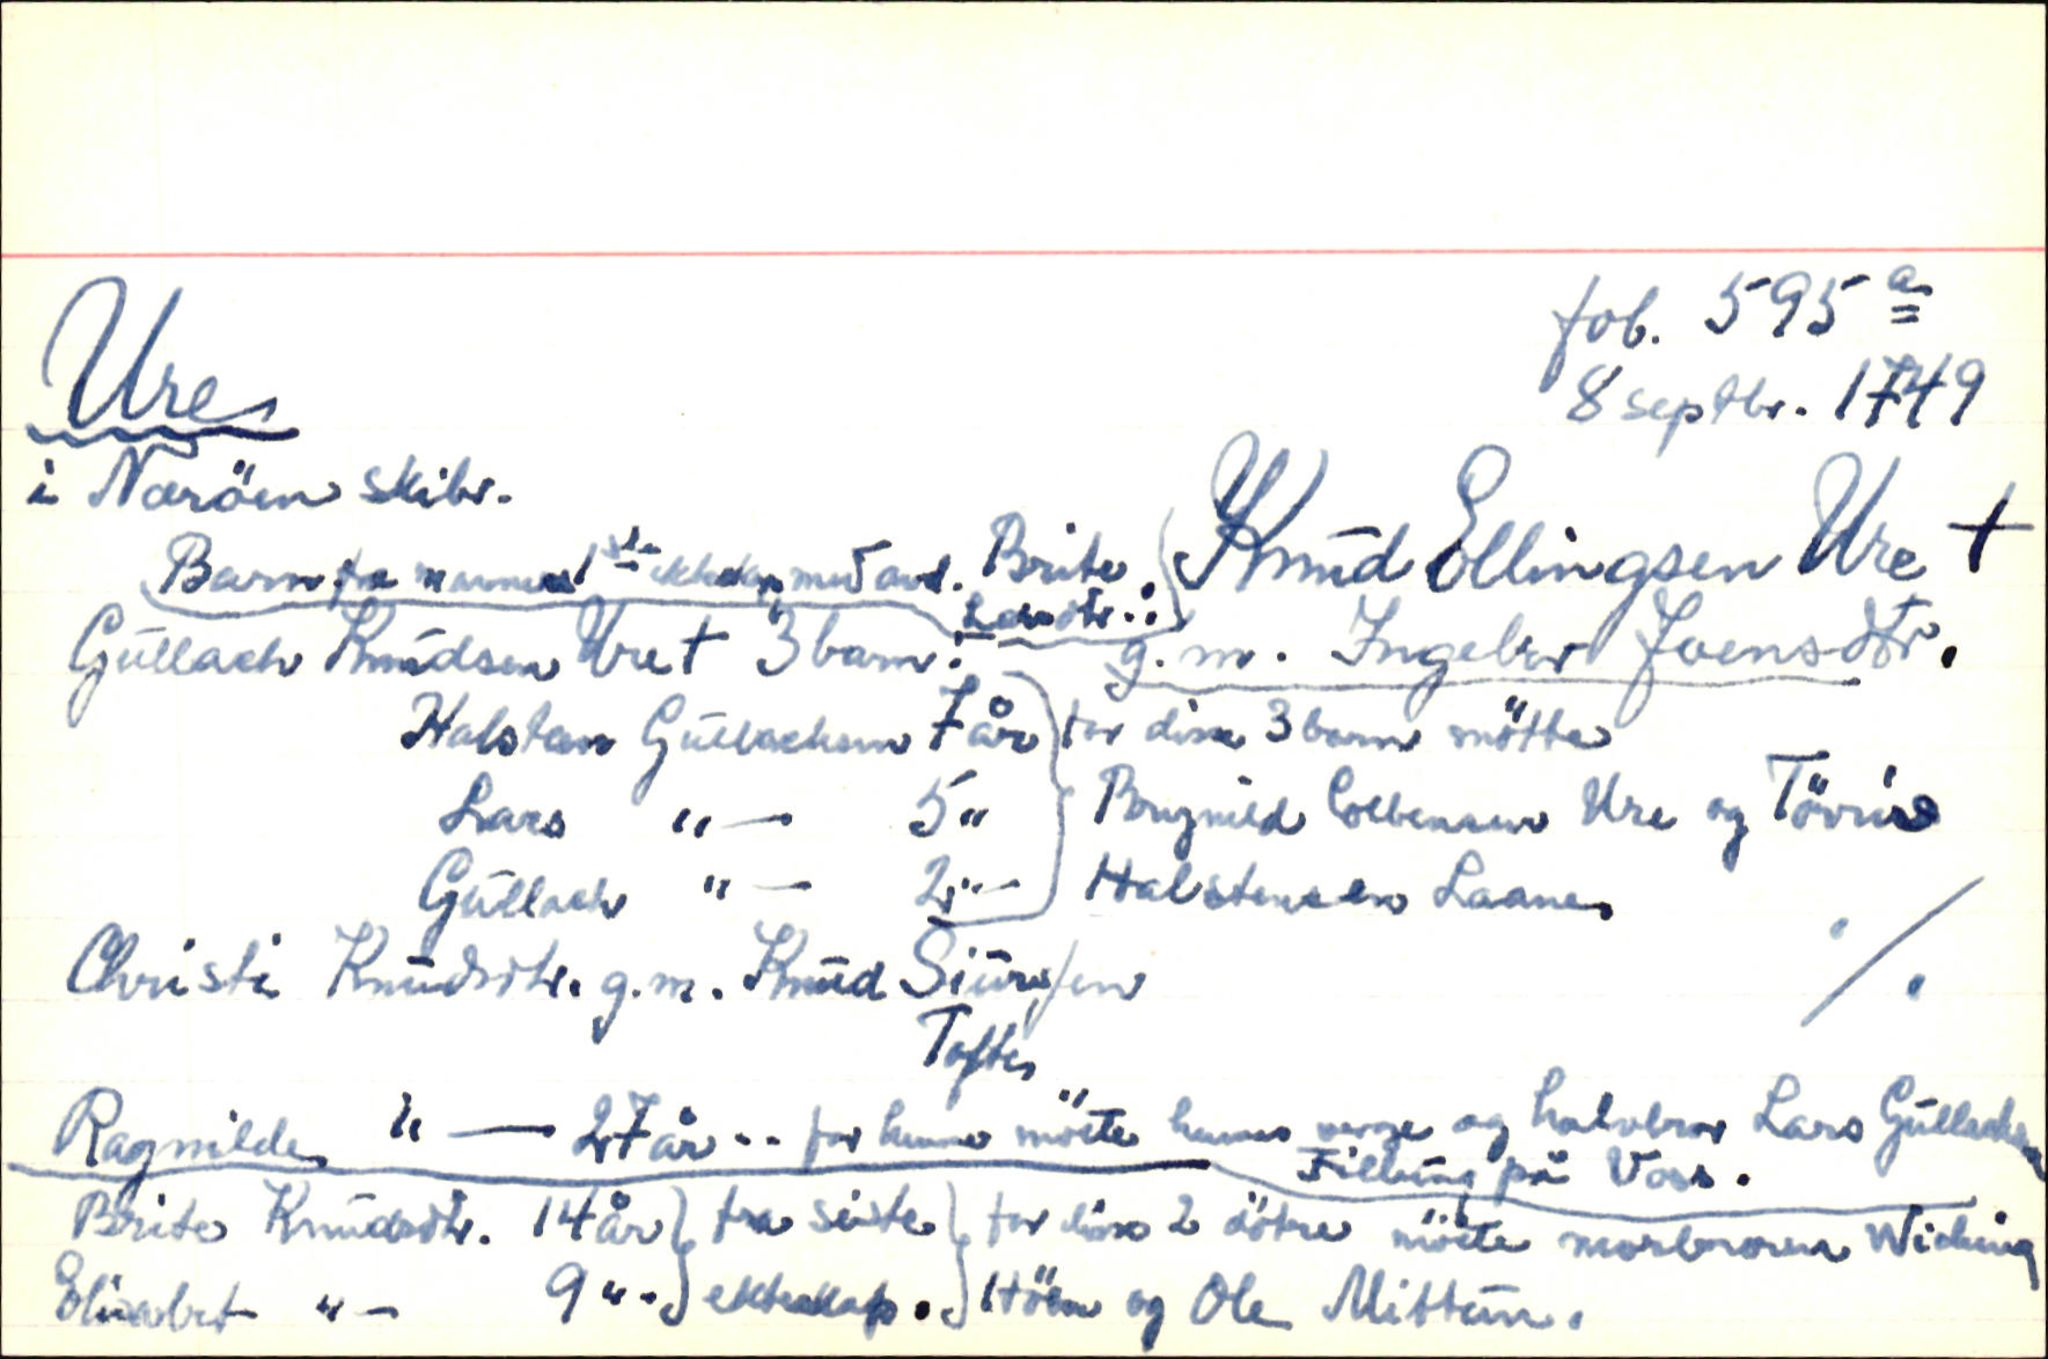 fol. 595 a
8 septbr. 1749
Ure
i Næröen skibr.
Knud Ellingsen Ure †
g.m. Ingebor Joensdtr.
Barn fra mannens 1ste ekteskap med avd. Brite
Larsdtr.:
Gullach Knudsen Ure † 3 barn:
Halsten Gullachsen 7 år
Lars " — 5 "
Gullach " — 2 " —
for disse 3 barn mötte
Brynild Colbensen Ure og Tövris
Halstensen Laane
Christi Knudsdtr. g.m. Knud Siursen
Tofte
./.
Ragnilde " — 27 år .. for henne möete hennes verge og halvbror Lars Gullachsen
Fillung på Voss.
Brite Knudsdtr. 14 år } fra siste } for disse 2 dötre möete morbroren Wiching
Elisabet " — 9 " . } ekteskap. } Höen og Ole Mittun.